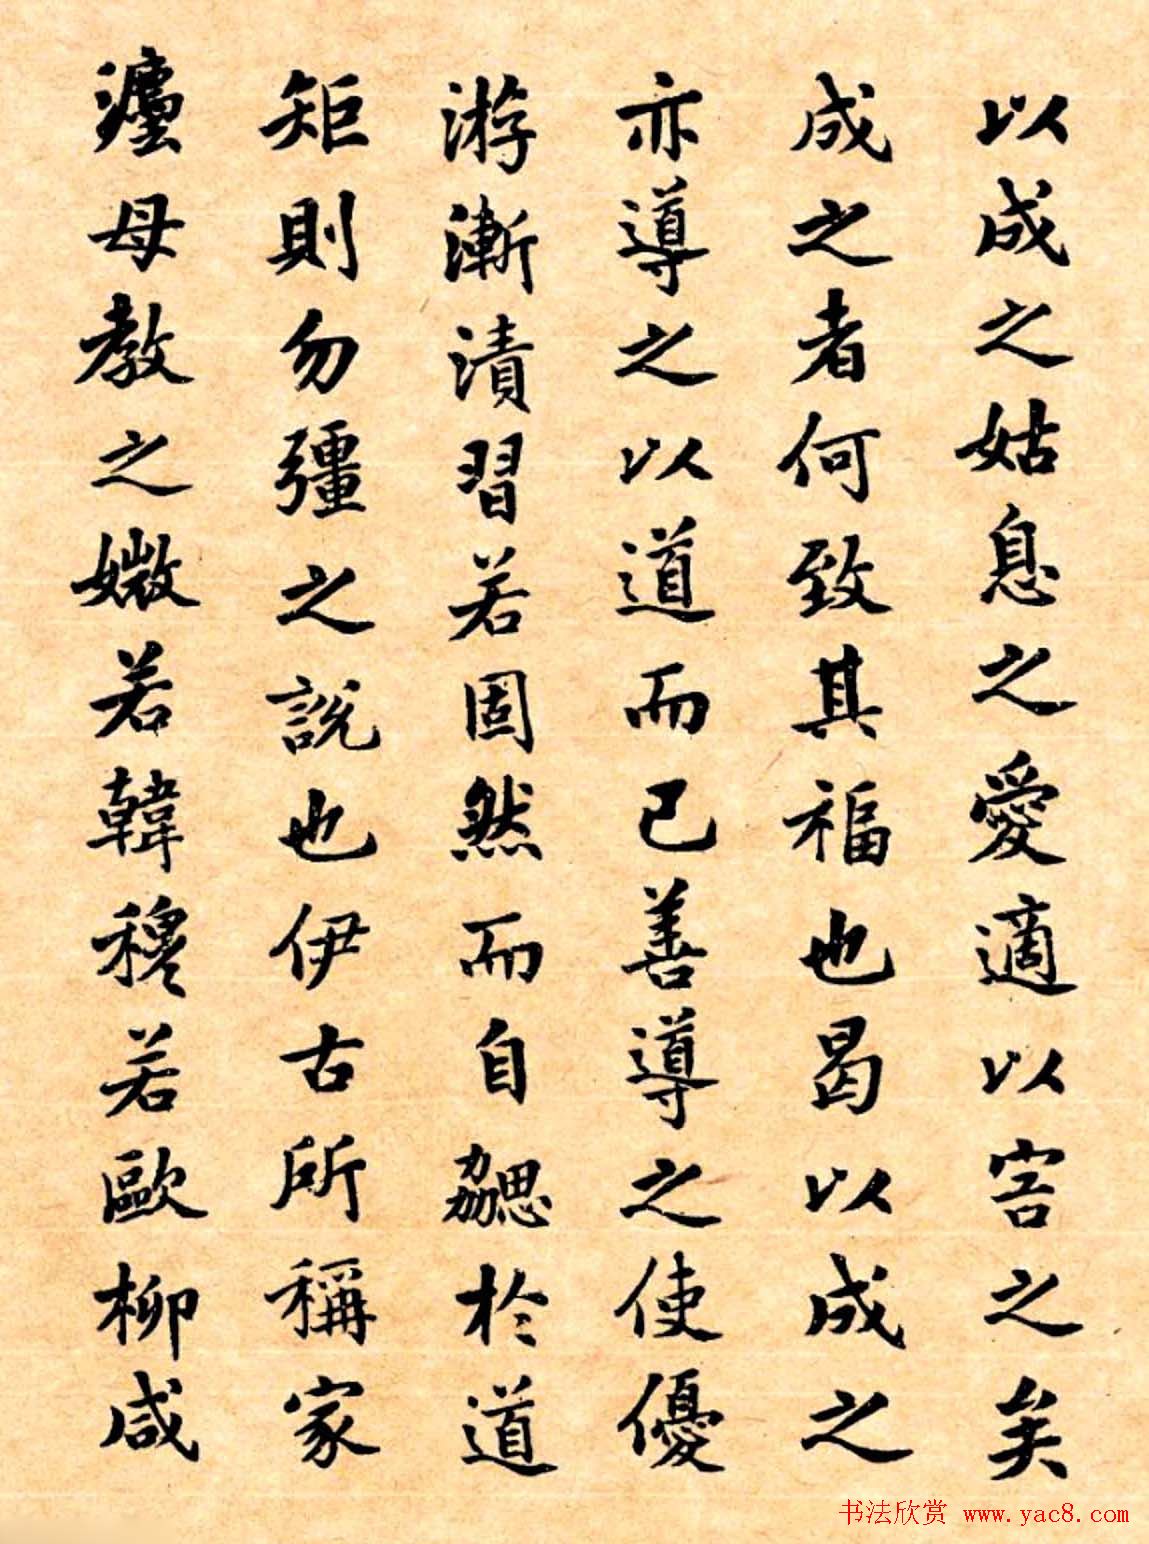 以成之姑息之愛適以害之矣
成之者何致其福也曷以成之
亦導之以道而已善導之使優
游漸漬習若固然而自勰於道
矩則勿彊之說也伊古所稱家
灋母教之媺若韓穆若歐柳咸
书法欣赏 www.yac8.com